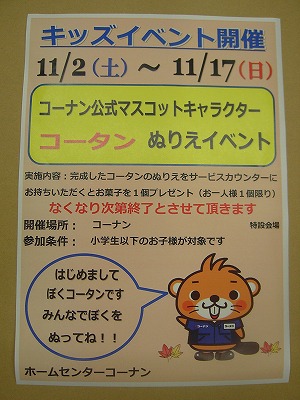 キッズイベント開催
11/2(土) ～ 11/17(日)
コーナン公式マスコットキャラクター
コータン ぬりえイベント
実施内容：完成したコータンのぬりえをサービスカウンターに
お持ちいただくとお菓子を1個プレゼント（お一人様1個限り）
なくなり次第終了とさせて頂きます
開催場所： コーナン 特設会場
参加条件： 小学生以下のお子様が対象です
はじめまして
ぼくコータンです
みんなでぼくを
ぬってね！！
コーナン
ホームセンターコーナン